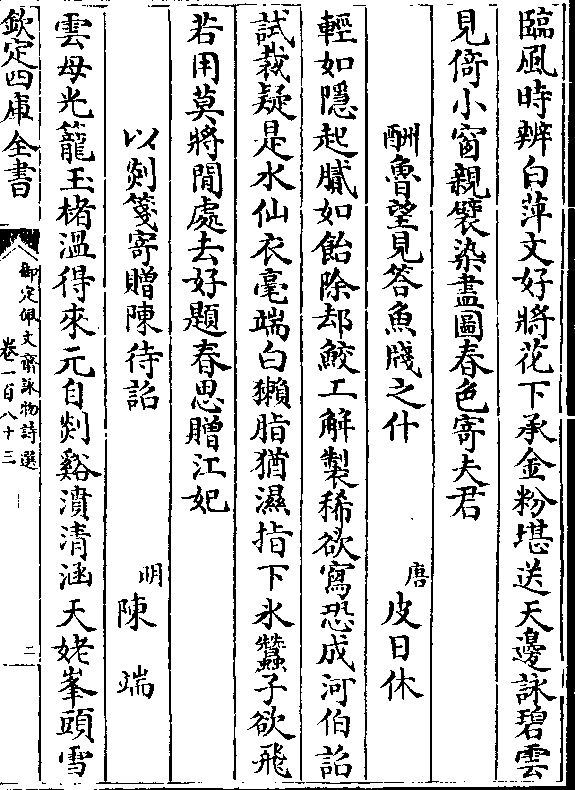 臨風時辨白萍文好將花下承金粉堪送天邊詠碧雲
見倚小窗親襞染盡圖春色寄夫君
酬魯望見答魚牋之什 唐皮日休
輕如隱起膩如飴除却鮫工解製稀欲寫恐成河伯詔
試裁疑是水仙衣毫端白獺脂猶濕指下氷蠶子欲飛
若用莫將閒處去好題春思贈江妃
以剡箋寄贈陳待詔 明陳端
雲母光籠玉楮溫得來元自剡谿濆清涵天姥峯頭雪
欽定四庫全書
御定佩文齋詠物詩選
卷一百八十三
二